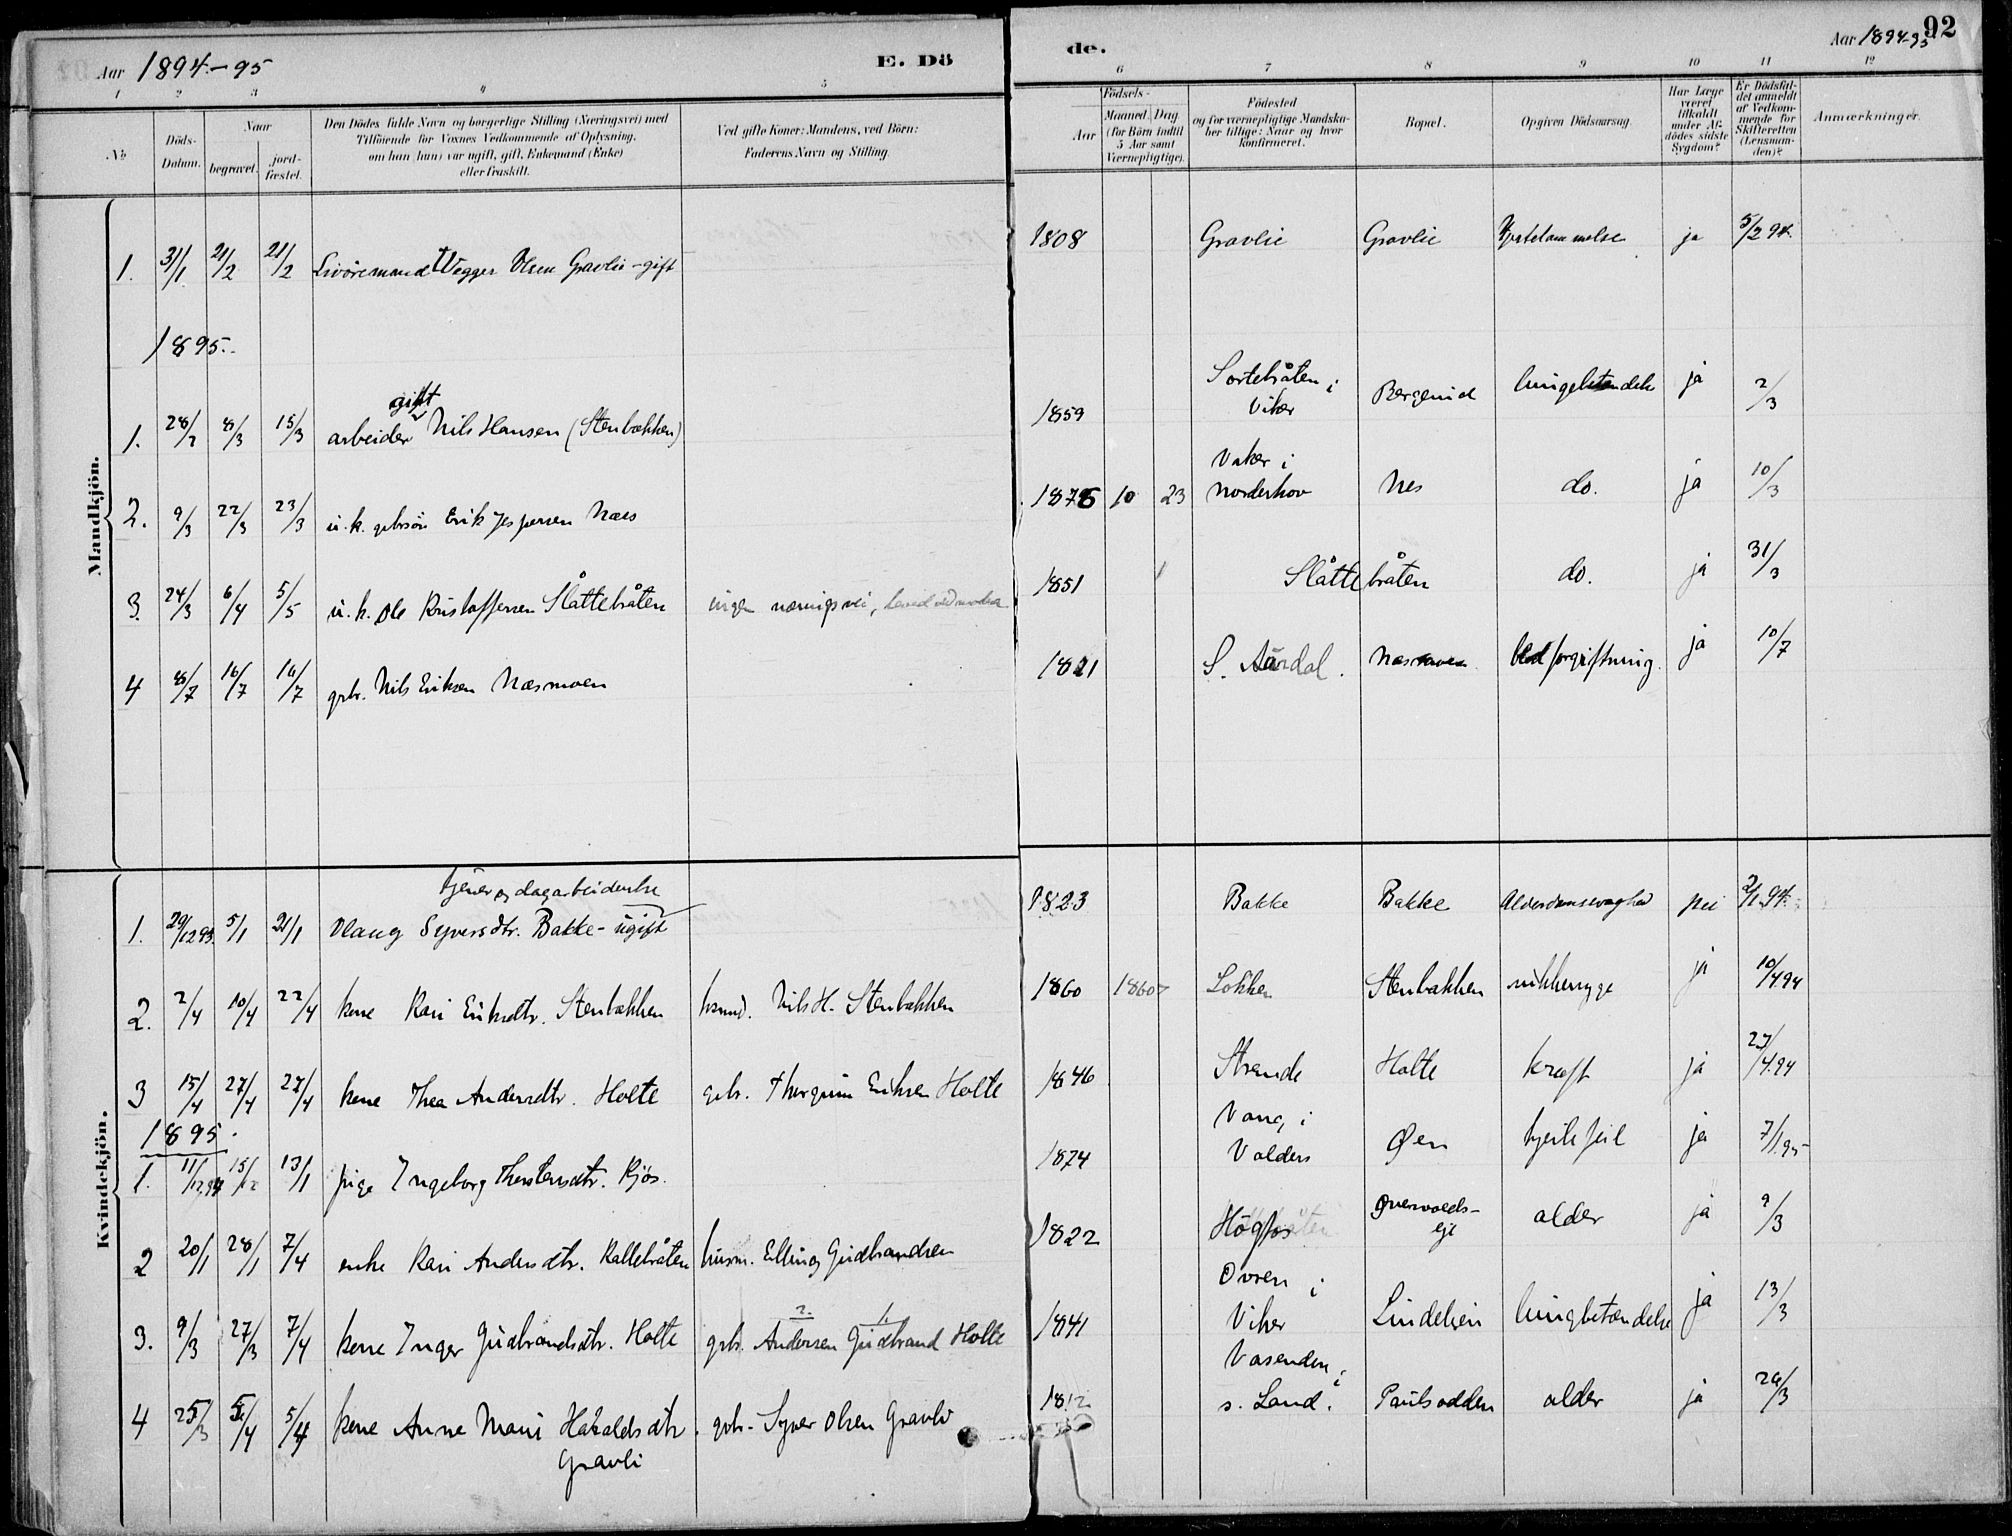 Aar 1894-95
E. Dö
de.
Aar 1894-95
92
1 2 3 4 5 6 7 8 9 10 11 12
№
Döds-Datum.
Naar
begravet.
jord-fæstet.
Den Dödes fulde Navn og borgerlige Stilling (Næringsvei) med
Tilföiende for Voxnes Vedkommende af Oplysning,
om han (hun) var ugift, gift, Enkemand (Enke)
eller fraskilt.
Ved gifte Koner: Mandens, ved Börn:
Faderens Navn og Stilling.
Födsels-
Aar
Maaned. Dag
(for Börn indtil
5 Aar samt
Værnepligtige).
Födested
og for værnepligtige Mandska-
ber tillige: Naar og hvor
konfirmeret.
Bopæl.
Opgiven Dödsaarsag.
Har Læge
været
tilkaldt
under Af-
dödes sidste
Sygdom?
Er Dödsfal-
det anmeldt
af Vedkom-
mende for
Skifteretten
(Lensman-
den)?
Anmærkninger.
Mandkjön.
1. 31/1 21/2 21/2 Livöremand Vegger Olsen Gravlie - gift 1808 Gravlie Gravlie ja 5/2 94.
1895.
gift
1. 28/2 8/3 15/3 arbeider Nils Hansen (Stenbakken) 1859 Sortebråten i Viker lungebetændelse ja 2/3
2. 9/3 22/3 23/3 u.k. gbrsön Erik Jespersen Næs 1876 10 23 Vaker i Norderhov Nes do. ja 10/3
3. 24/3 6/4 5/5 u.k. Ole Kristoffersen Slåttebråten ingen næringsvei, 1851 Slåttebråten do. ja 31/3
4 8/7 16/7 16/7 gbr. Nils Eriksen Næsmoen 1821 S. Aurdal. Næsmoen Blodforgiftning. ja 10/7
Kvindekjön.
tjener og dagarbeiderske
1. 29/12 93. 5/1 21/1 Olaug Syversdtr. Bakke - ugift 1823 Bakke Bakke Alderdomssvaghed nei 2/1 94.
2. 2/4 10/4 22/4 kone Kari Eriksdtr. Stenbakken husmd. Nils H. Stenbakken 1860 1860 Lökken Stenbakken ja 10/4 94
3 15/4 27/4 27/4 kone Thea Andersdtr. Holte gbr. Thorgrim Eriksen Holte 1846 Strande Holte kræft ja 27/4 94
1895.
1. 11/12 94 15/12 13/1 pige Ingeborg Thorstensdtr. Kjös. 1874 Vang i Valders Øen hjertefeil ja 7/1 95
2 20/1 28/1 7/4 enke Kari Andersdtr. Kallebråten husm. Elling Gudbrandsen 1822 Högfos alder ja 9/3
3. 9/3 27/3 7/4 kone Inger Gudbrandsdtr. Holte gbr. Andersen Gudbrand Holte 1841 Ovren i Viker Lindelien lungebetændelse ja 13/3
4 25/3 5/4 5/4 kone Anne Marie Haraldsdtr. Gravli gbr. Syver Olsen Gravli 1812 Vasenden i s. Land. Paulsodden alder ja 26/3